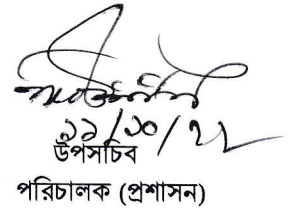 ১১/১০/২২
উপসচিব
পরিচালক (প্রশাসন)